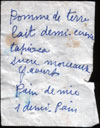 Pomme de terre
lait demi-écrémé
tapioca
sucre morceaux
Yaourts
Pain de mie
1 demi-Pain